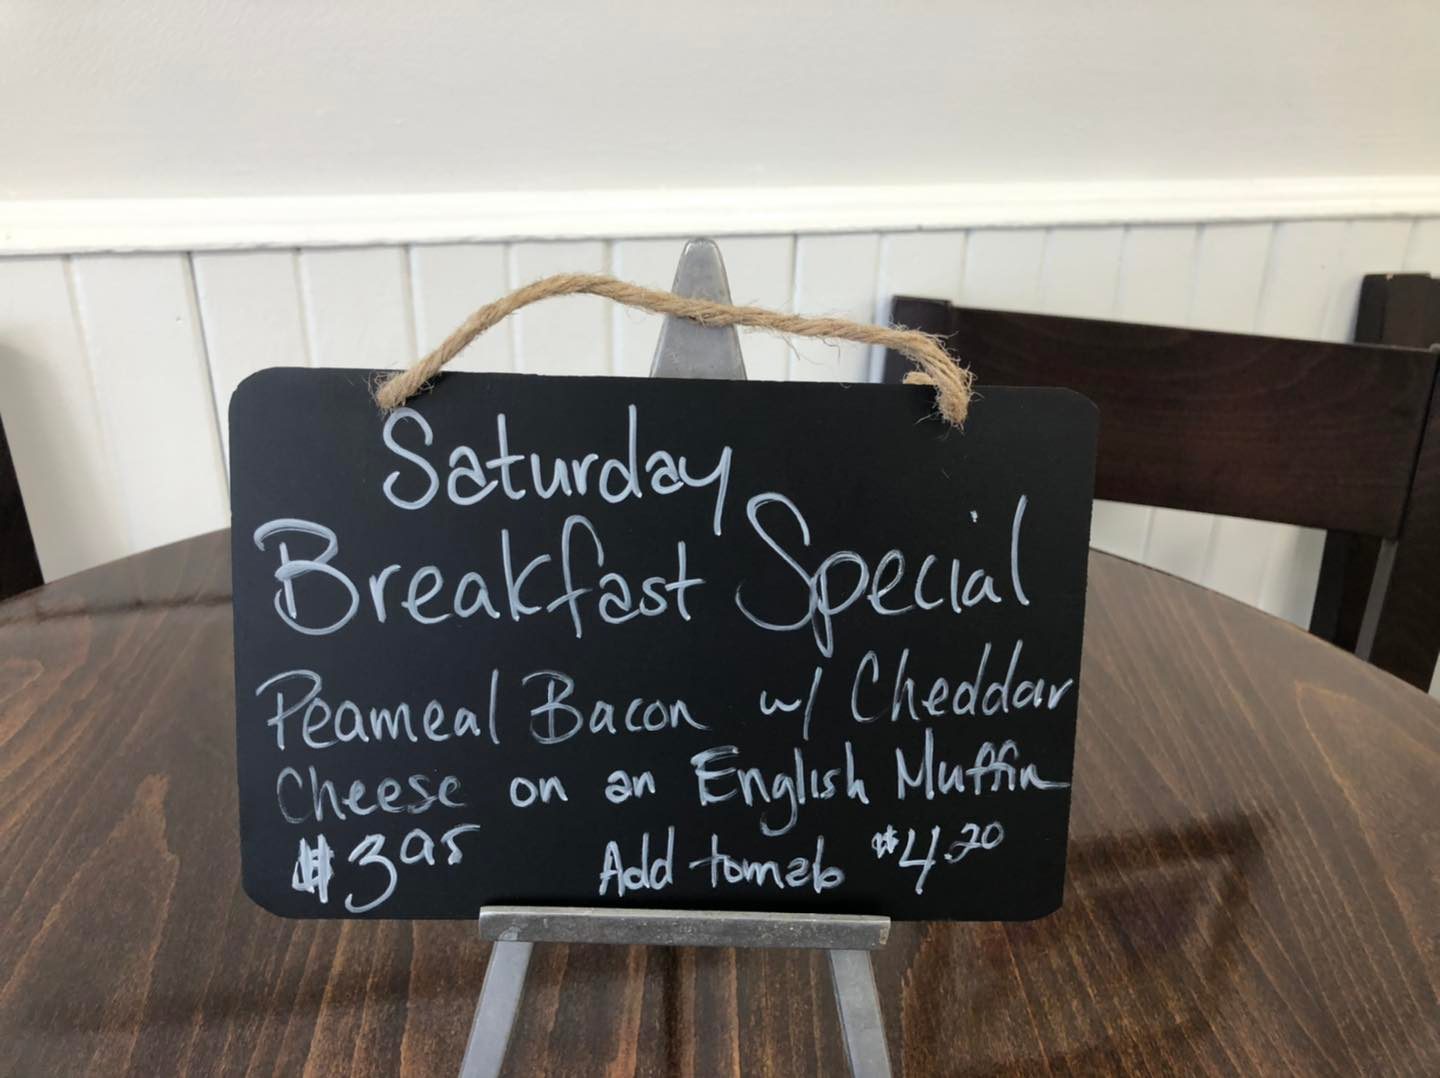 Saturday
Breakfast Special
Peameal Bacon w/ Cheddar
Cheese on an English Muffin
$3.95 Add tomato $4.20